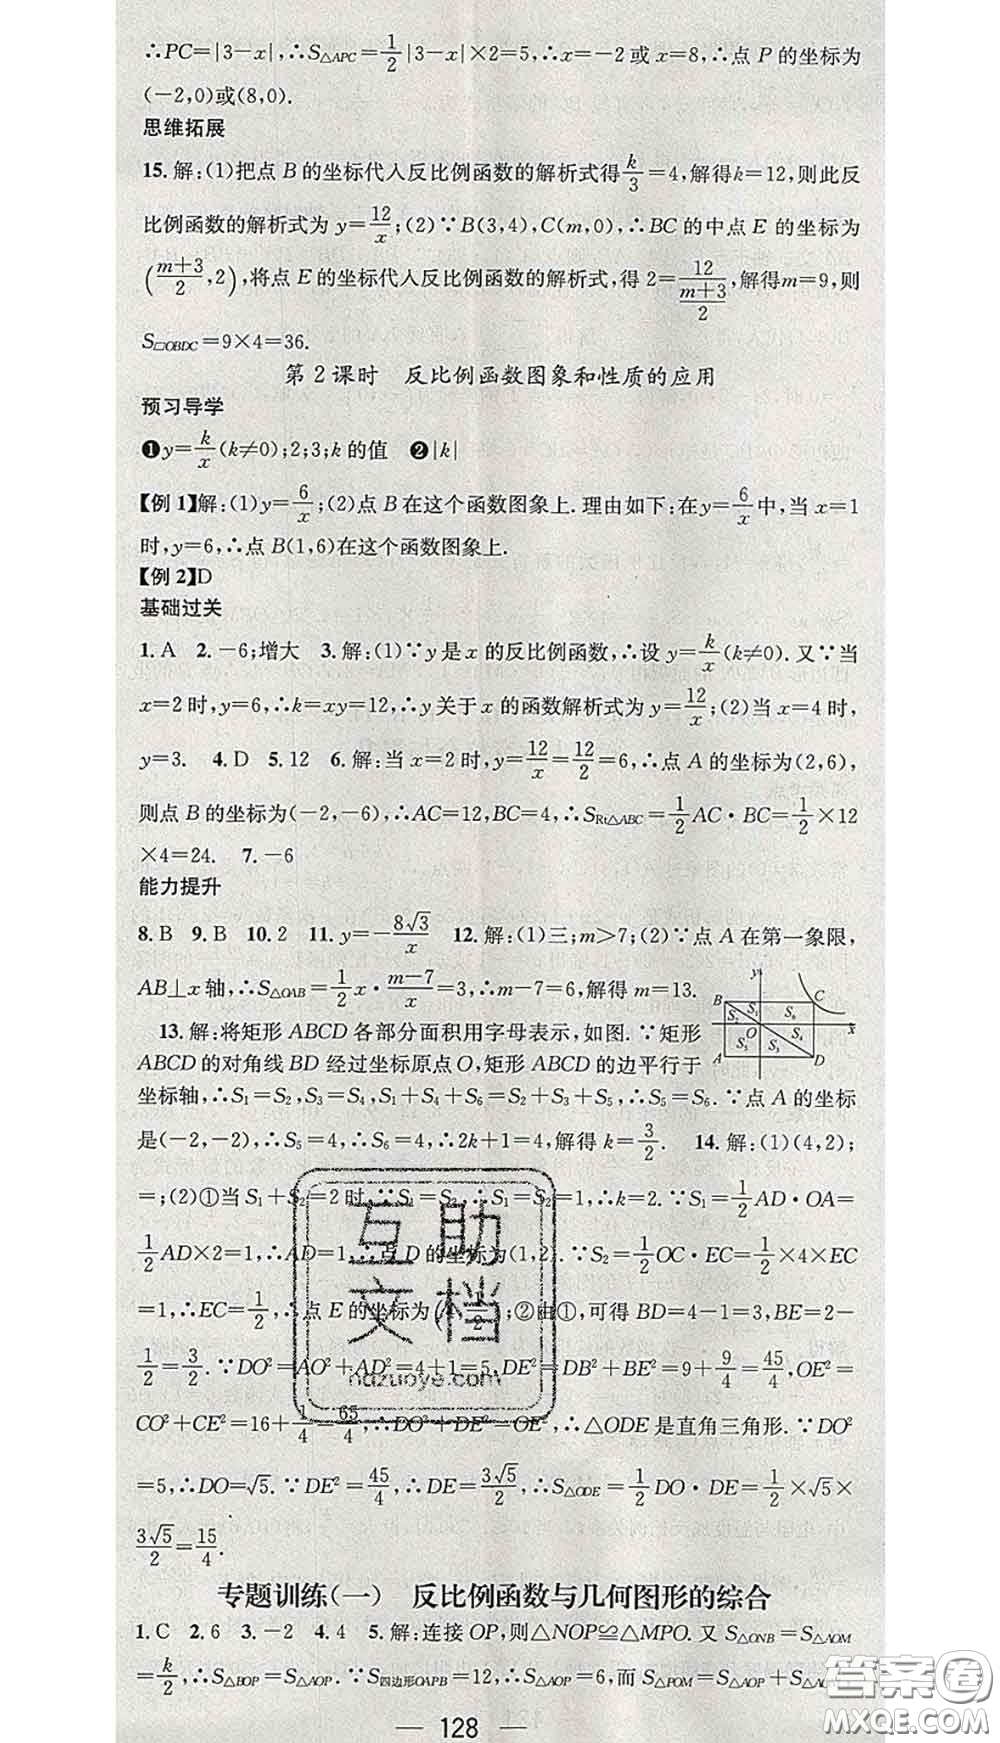 ∴PC=|3-x|,∴S△APC=1/2|3-x|×2=5,∴x=-2或x=8,∴点 P 的坐标为
(-2,0)或(8,0).
思维拓展
15.解:(1)把点 B 的坐标代入反比例函数的解析式得k/3=4,解得k=12,则此反
比例函数的解析式为 y=12/x;(2)∵B(3,4),C(m,0),∴BC的中点E的坐标为
((m+3)/2,2),将点 E 的坐标代入反比例函数的解析式,得 2=12/((m+3)/2),解得m=9,则
S□OBDC=9×4=36.
第2课时 反比例函数图象和性质的应用
预习导学
❶y=k/x(k≠0);2;3;k的值 ❷|k|
【例1】解:(1)y=6/x;(2)点 B 在这个函数图象上.理由如下:在y=6/x中,当 x=1
时,y=6,∴点 B(1,6)在这个函数图象上.
【例2】D
基础过关
1.A 2.-6;增大 3.解:(1)∵y是x的反比例函数,∴设 y=k/x(k≠0).又∵当
x=2时,y=6,∴k=xy=12,∴y 关于 x 的函数解析式为 y=12/x;(2)当 x=4 时,
y=3. 4.D 5.12 6.解:当 x=2 时,y=12/x=12/2=6,∴点 A 的坐标为(2,6),
则点 B 的坐标为(-2,-6),∴AC=12,BC=4,∴SRt△ABC=1/2AC·BC=1/2×12
×4=24. 7.-6
能力提升
8.B 9.B 10.2 11.y=-8√3/x 12.解:(1)三;m>7;(2)∵点 A 在第一象限,
AB⊥x轴,∴S△OAB=1/2x·(m-7)/x=3,∴m-7=6,解得 m=13.
y B C S2 S1 S6 O x S5 S3 S4 A D
13.解:将矩形 ABCD 各部分面积用字母表示,如图.∵矩形
ABCD 的对角线 BD 经过坐标原点O,矩形 ABCD 的边平行于
坐标轴,∴S1=S2,S3=S4,S1+S4+S6=S2+S3+S5,∴S5=S6.∵点 A 的坐标
是(-2,-2),∴S5=4,∴S6=4,∴2k+1=4,解得 k=3/2. 14.解:(1)(4,2);
=;(2)①当 S1+S2=2时,∵S1=S2,∴S1=S2=1,∴k=2.∵S1=1/2AD·OA=
1/2AD×2=1,∴AD=1,∴点 D 的坐标为(1,2).∵S2=1/2OC·EC=1/2×4×EC
=1,∴EC=1/2,∴点 E 的坐标为(4,1/2);②由①,可得 BD=4-1=3,BE=2-
1/2=3/2.∵DO²=AO²+AD²=4+1=5,DE²=DB²+BE²=9+9/4=45/4,OE²=
CO²+CE²=16+1/4=65/4,∴DO²+DE²=OE²,∴△ODE 是直角三角形.∵DO²
=5,∴DO=√5.∵DE²=45/4,∴DE=3√5/2,∴S△ODE=1/2DO·DE=1/2×√5×
3√5/2=15/4.
专题训练(一) 反比例函数与几何图形的综合
1.C 2.6 3.-2 4.4 5.解:连接 OP,则△NOP≌△MPO.又 S△ONB=S△AOM
=k/2,∴S△BOP=S△AOP.∵S四边形OAPB=12,∴S△AOP=6,而 S△POM=S△AOP+S△AOM
— 128 —
互助文档
hdzuoye.com
答案圈
MXQE.COM